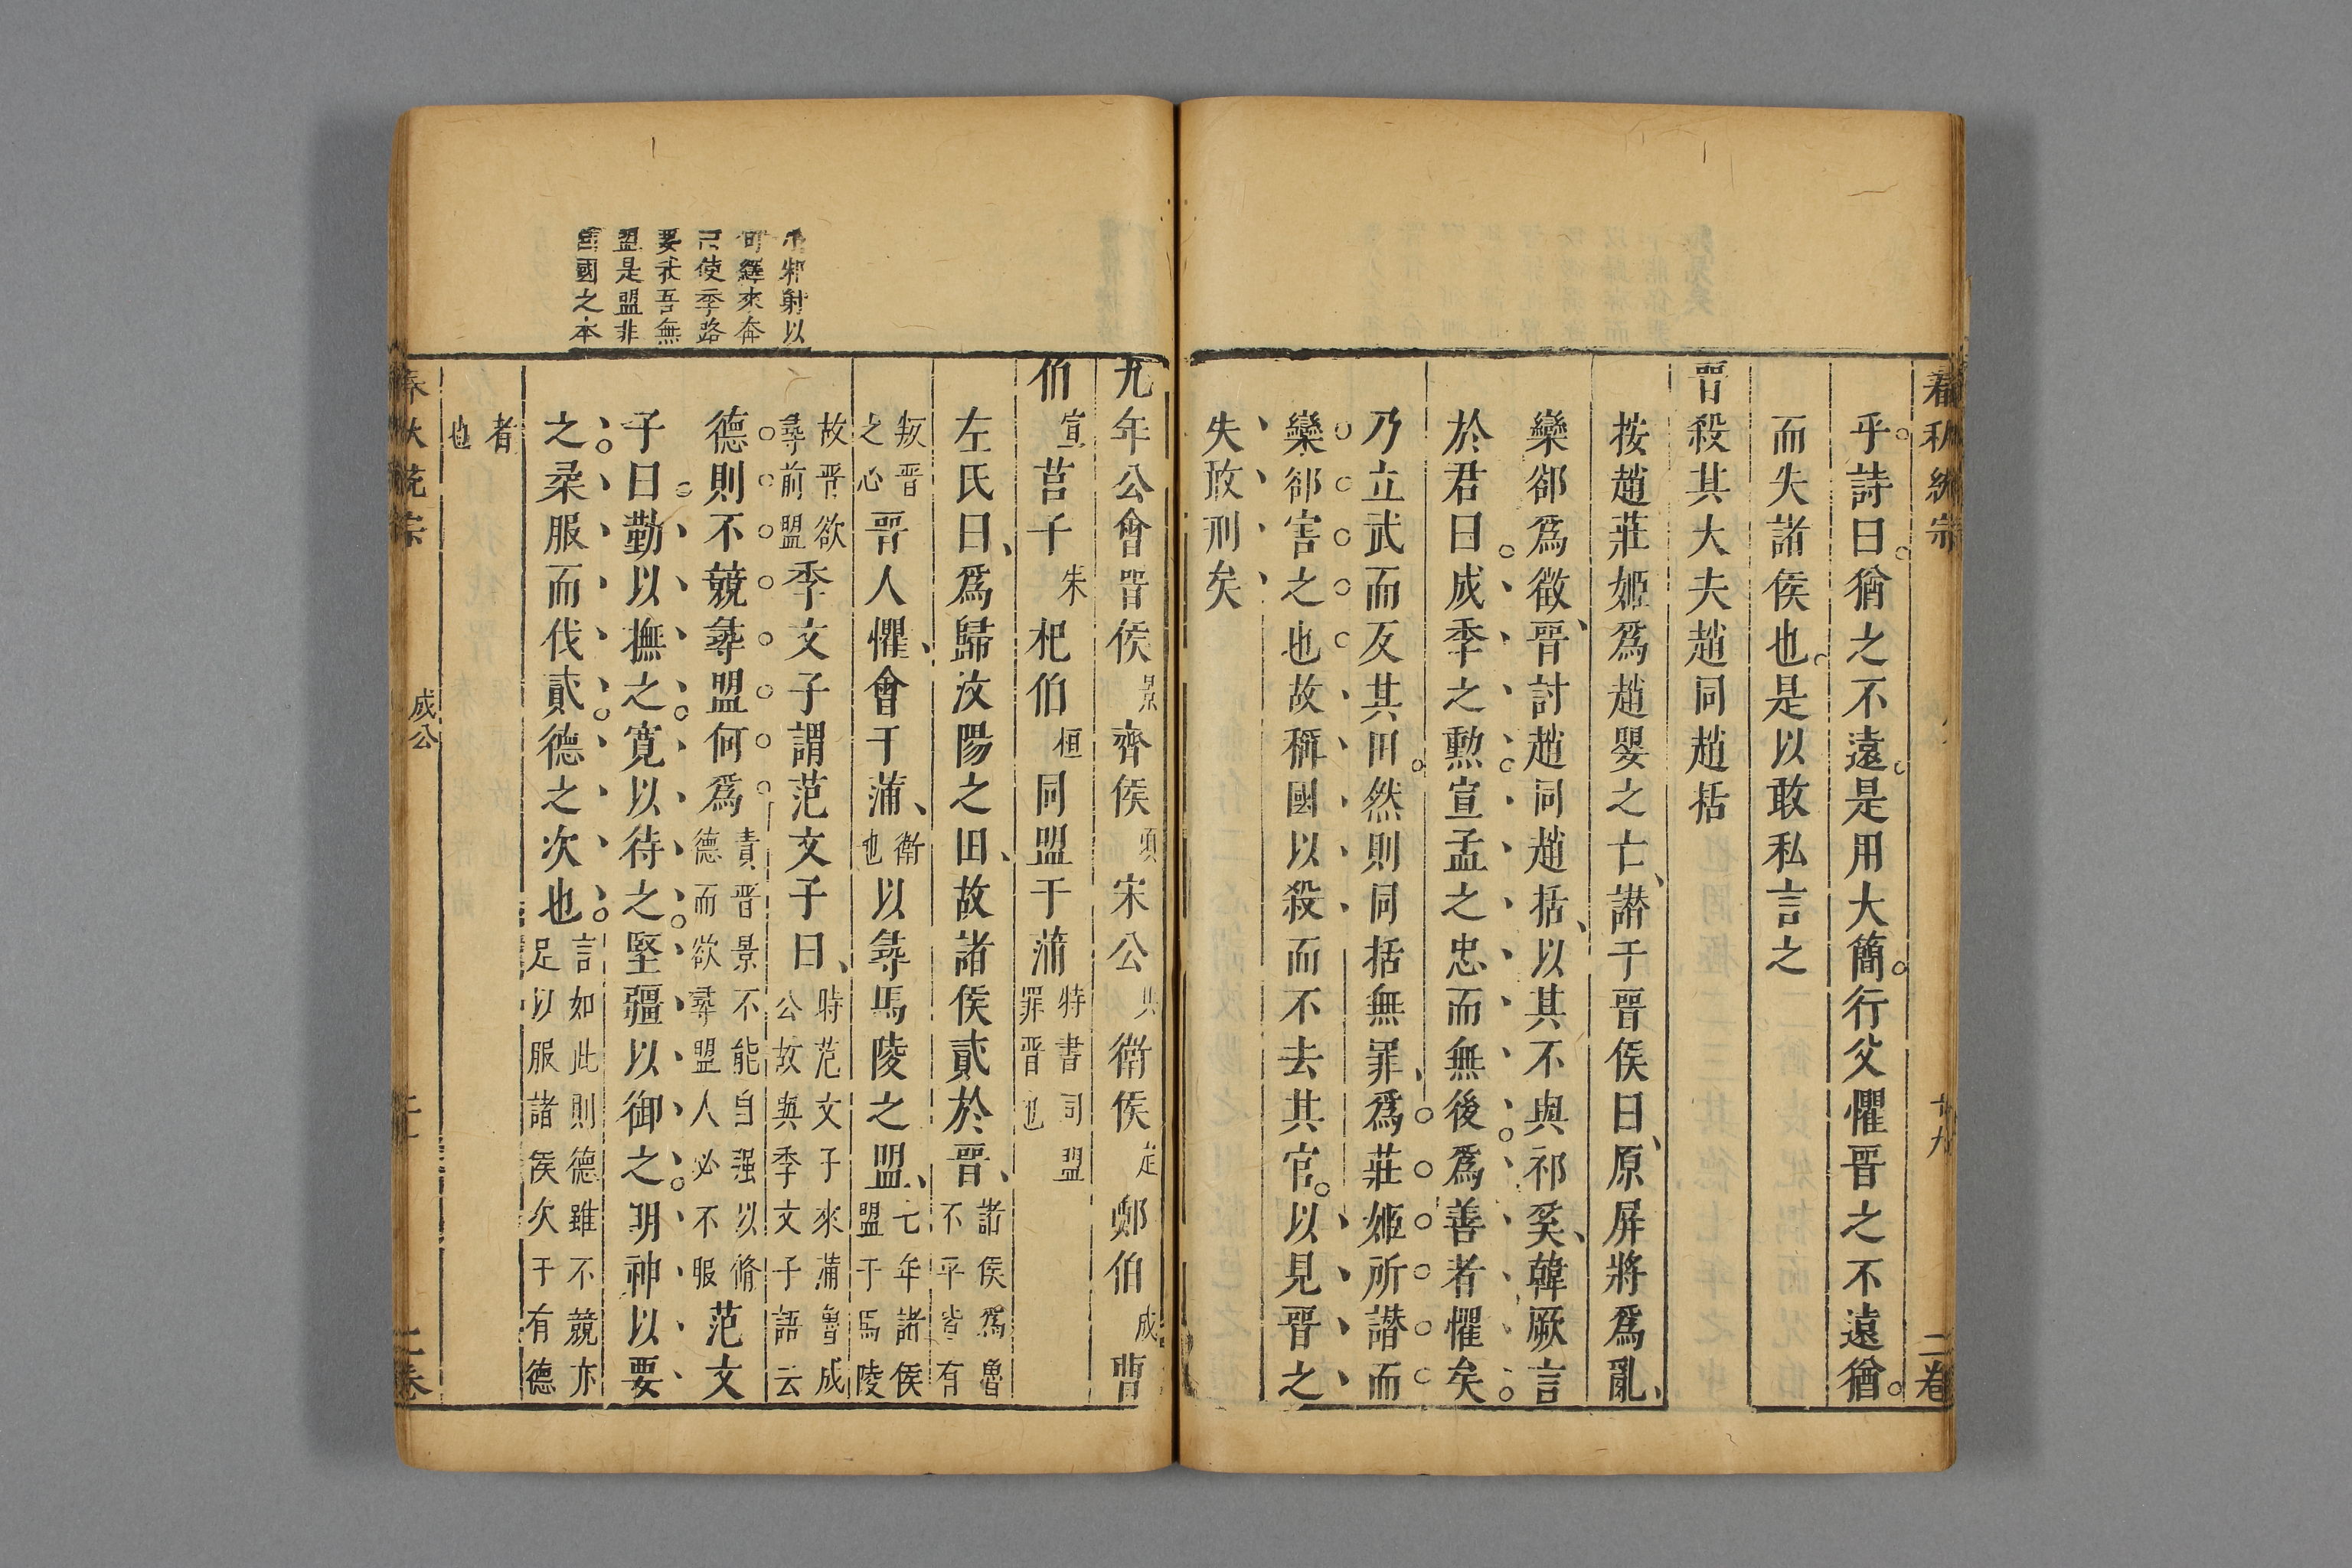 乎詩曰猶之不遠是用大簡行父懼晉之不遠猶
而失諸侯也是以敢私言之
晉殺其大夫趙同趙括
按趙莊姬爲趙嬰之亡譖于晉侯曰原屏將爲亂
欒郤爲徵晉討趙同趙括以其不與祁奚韓厥言
於君曰成季之勲宣孟之忠而無後爲善者懼矣
乃立武而反其田然則同括無罪爲莊姬所譖而
欒郤害之也故稱國以殺而不去其官以見晉之
失政刑矣
小邾射以
句繹來奔
曰使季路
要我吾無
盟是盟非
國之本
九年公會晉侯景齊侯頃宋公共衛侯定鄭伯成曹
伯宣莒子朱杞伯桓同盟于蒲特書同盟罪晉也
左氏曰爲歸汶陽之田故諸侯貳於晉諸侯爲魯不平皆有
叛晉之心晉人懼會于蒲衛也以尋馬陵之盟七年諸侯盟于馬陵
故晉欲尋前盟季文子謂范文子曰時范文子來蒲魯成公故與季文子語云
德則不競尋盟何爲責晉景不能自强以脩德而欲尋盟人必不服范文
子曰勤以撫之寛以待之堅彊以御之明神以要
之柔服而伐貳德之次也言如此則德雖不競亦足以服諸侯次于有德
者也
春秋統宗
成公
二卷